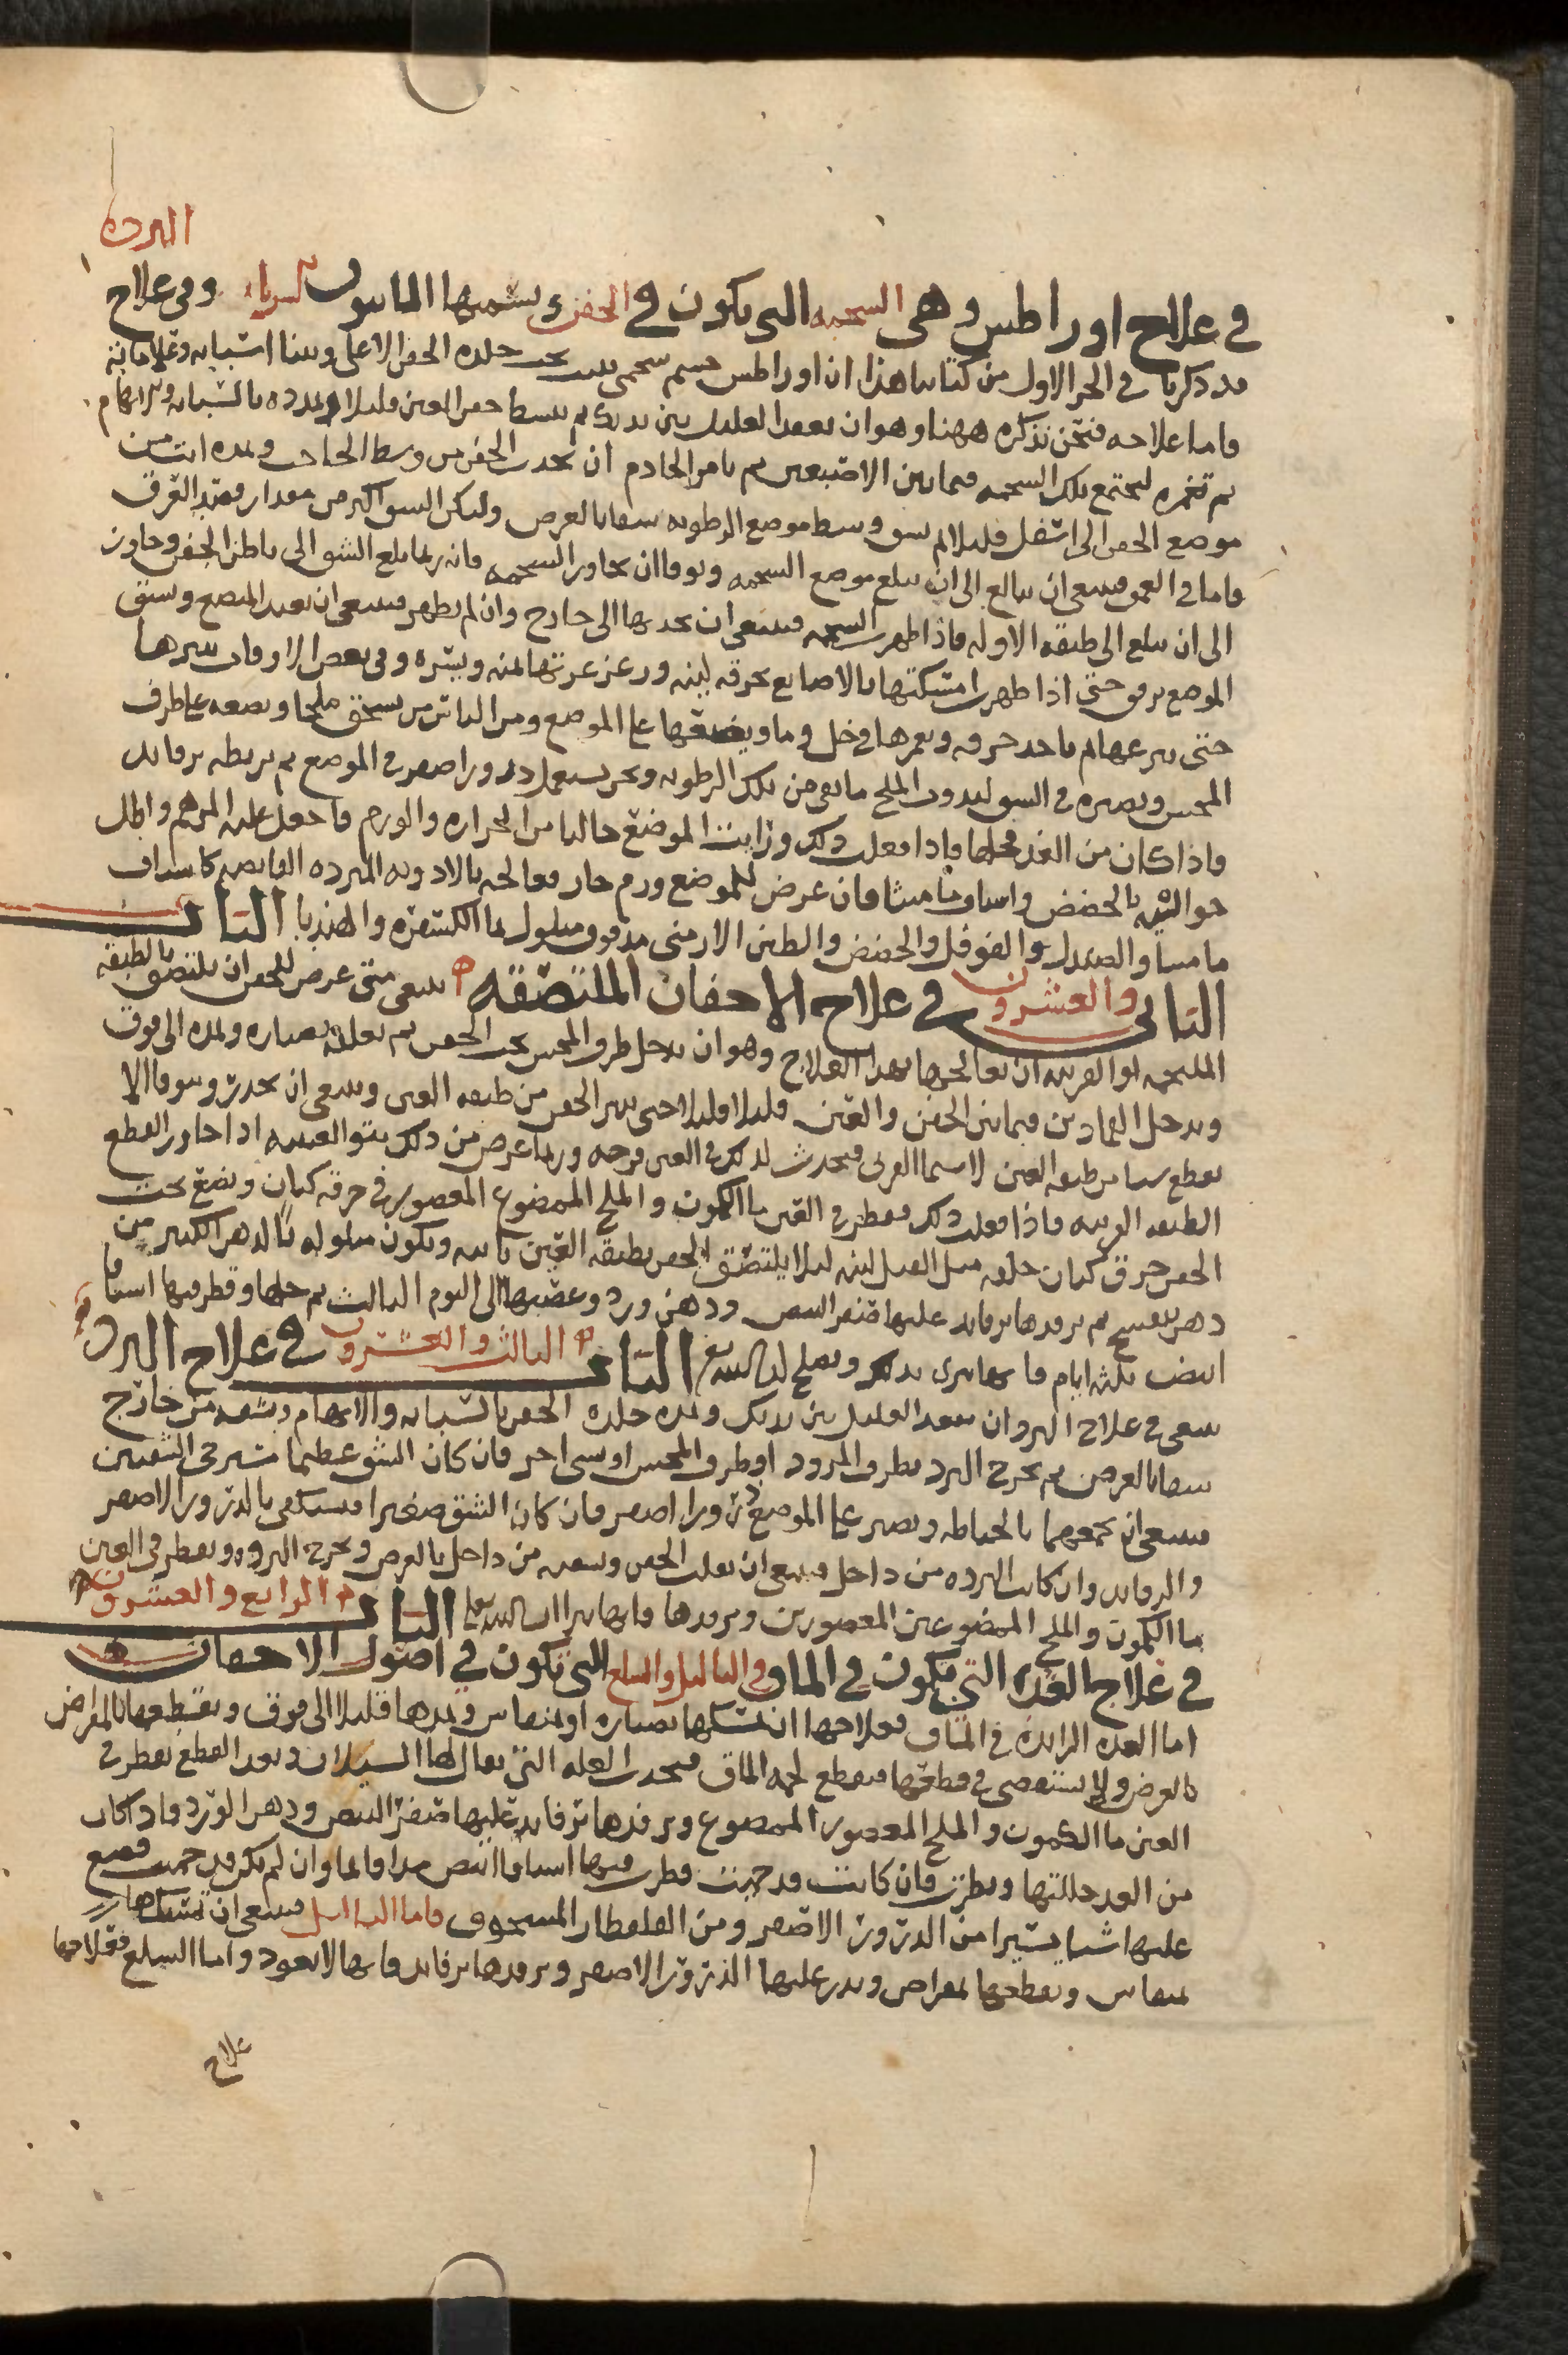 البرده
في علاج اوراطس وهي الشحمه التي تكون في الجفن ويسميها اليونانيون وفي علاج
قد ذكرنا في الجز الاول من كتابنا هذا ان اوراطس جسم شحمي تحت جلدة الجفن الاعلى وبينا اسبابه وعلاماته
فاما علاجه فنحن نذكره ههنا وهو ان تقعد العليل بين يديك ثم تبسط جفن العين قليلا وتمدده بالسبابه والابهام
ثم تغمزه ليجتمع تلك الشحمه فيما بين الاصبعين ثم تامر الخادم ان يجذب الجفن من وسط الحاجب وتمده انت من
موضع الجفن الى اسفل قليلا ثم تشق وسط موضع الرطوبه شقا بالعرض وليكن الشق اكبر من مقدار فصد العرق
فاما في العمق فينبغي ان تبالغ الى ان تبلغ موضع الشحمه وتوقا ان تجاوز الشحمه فانه ربما بلغ الشق الى باطن الجفن وجاوز
الى ان يبلغ الى طبقه الاوله فاذا ظهرت الشحمه فينبغي ان تجذبها الى خارج وان لم تظهر فينبغي ان تعيد المبضع وتشق
الموضع برفق حتى اذا ظهرت امسكتها بالاصابع بخرقه لينه وزعزعتها يمنه ويسره وفي بعض الاوقات تديرها
حتى تنزعها ثم تاخذ خرقه وتغمرها في خل وما وتضعها على الموضع ومن الناس من يسحق ملحا ويضعه على طرف
المجس ويصيره في الشق ليذوب الملح ما بقي من تلك الرطوبه ونحن نستعمل ذرورا اصفر في الموضع ثم تربطه برفايد
فاذا كان من الغد فحلها فاذا فعلت ذلك ورايت الموضع خاليا من الحراره والورم فاجعل عليه المرهم واطل
حواليه بالحضض واسياف ماميثا فان عرض للموضع ورم حار فعالجه بالادويه المبرده القابضه كاسياف
ماميثا والصندل والفوفل والحضض والطين الارمني مدقوق مبلول بما الكسفره والهندبا الباب
الثاني والعشرون في علاج الاجفان الملتصقه ينبغي متى عرض للجفن ان يلتصق بالطبقه
الملتحمه او القرنيه ان تعالجها بهذا العلاج وهو ان تدخل طرف المجس تحت الجفن ثم تعلقه بصناره وتمده الى فوق
وتدخل القمادين فيما بين الجفن والعين قليلا قليلا حتى تبرا الجفن من طبقه العين وينبغي ان تحذر وتتوقا الا
تقطع شيا من طبقه العين لا سيما القرني فيحدث لذلك في العين قرحه وربما عرض من ذلك نتو العنبيه اذا جاوز القطع
الطبقه القرنيه فاذا فعلت ذلك فقطر في العين ما الكمون والملح الممضوغ المعصور في خرقه كتان وتضع تحت
الجفن خرق كتان خلقه مثل الفتل لينه ليلا يلتصق الجفن بطبقه العين ثانيه وتكون مبلوله بالدهن الكثير من
دهن بنفسج ثم ترفدها برفايد عليها صفر البيض ودهن ورد وعصبها الى اليوم الثالث ثم حلها وقطر فيها اسيافا
ابيض ثلثه ايام فانها تبرى بذلك وتصلح ان شا الله تعالى الباب الثالث والعشرون في علاج البرد
ينبغي في علاج البرد ان تقعد العليل بين يديك وتمد جلدة الجفن بالسبابه والابهام وتشقه من خارج
شقا بالعرض ثم تخرج البرد بطرف المرود او طرف المجس او شي اخر فان كان الشق عظيما مسترخي الشفتين
فينبغي ان تجمعهما بالخياطه وتصير على الموضع ذرورا اصفر فان كان الشق صغيرا فيستكفي بالذرور الاصفر
والرفايد وان كانت البرده من داخل فينبغي ان تقلب الجفن وتشقه من داخل بالعرض وتخرج البرده وتقطر في العين
ما الكمون والملح الممضوغين المعصورين وترفدها فانها تبرا ان شا الله تعالى الباب الرابع والعشرون
في علاج الغده التي تكون في الماق وفي الثاليل والسلع التي تكون في اصول الاجفان
اما الغده الزايده في الماق فعلاجها ان تمسكها بصناره او بمنقاش وتمدها قليلا الى فوق وتقطعها بالمقراض
بالعرض ولا تستقصي في قطعها فتقطع لحمه الماق فيحدث العله التي يقال لها السيلان وبعد القطع تقطر في
العين ما الكمون والملح المعصور الممضوغ وترفدها برفايد عليها صفر البيض ودهن الورد فاذا كان
من الغد حللتها ونظرت فان كانت قد حميت قطرت فيها اسيافا ابيض مدافا بما وان لم تكن قد حميت فضع
عليها شيا يسيرا من الذرور الاصفر ومن القلقطار المسحوق فاما الثاليل فينبغي ان تمسكها
بمنقاش وتقطعها بمقراض وتذر عليها الذرور الاصفر وترفدها برفايد فانها لا تعود واما السلع فعلاجها
علاج